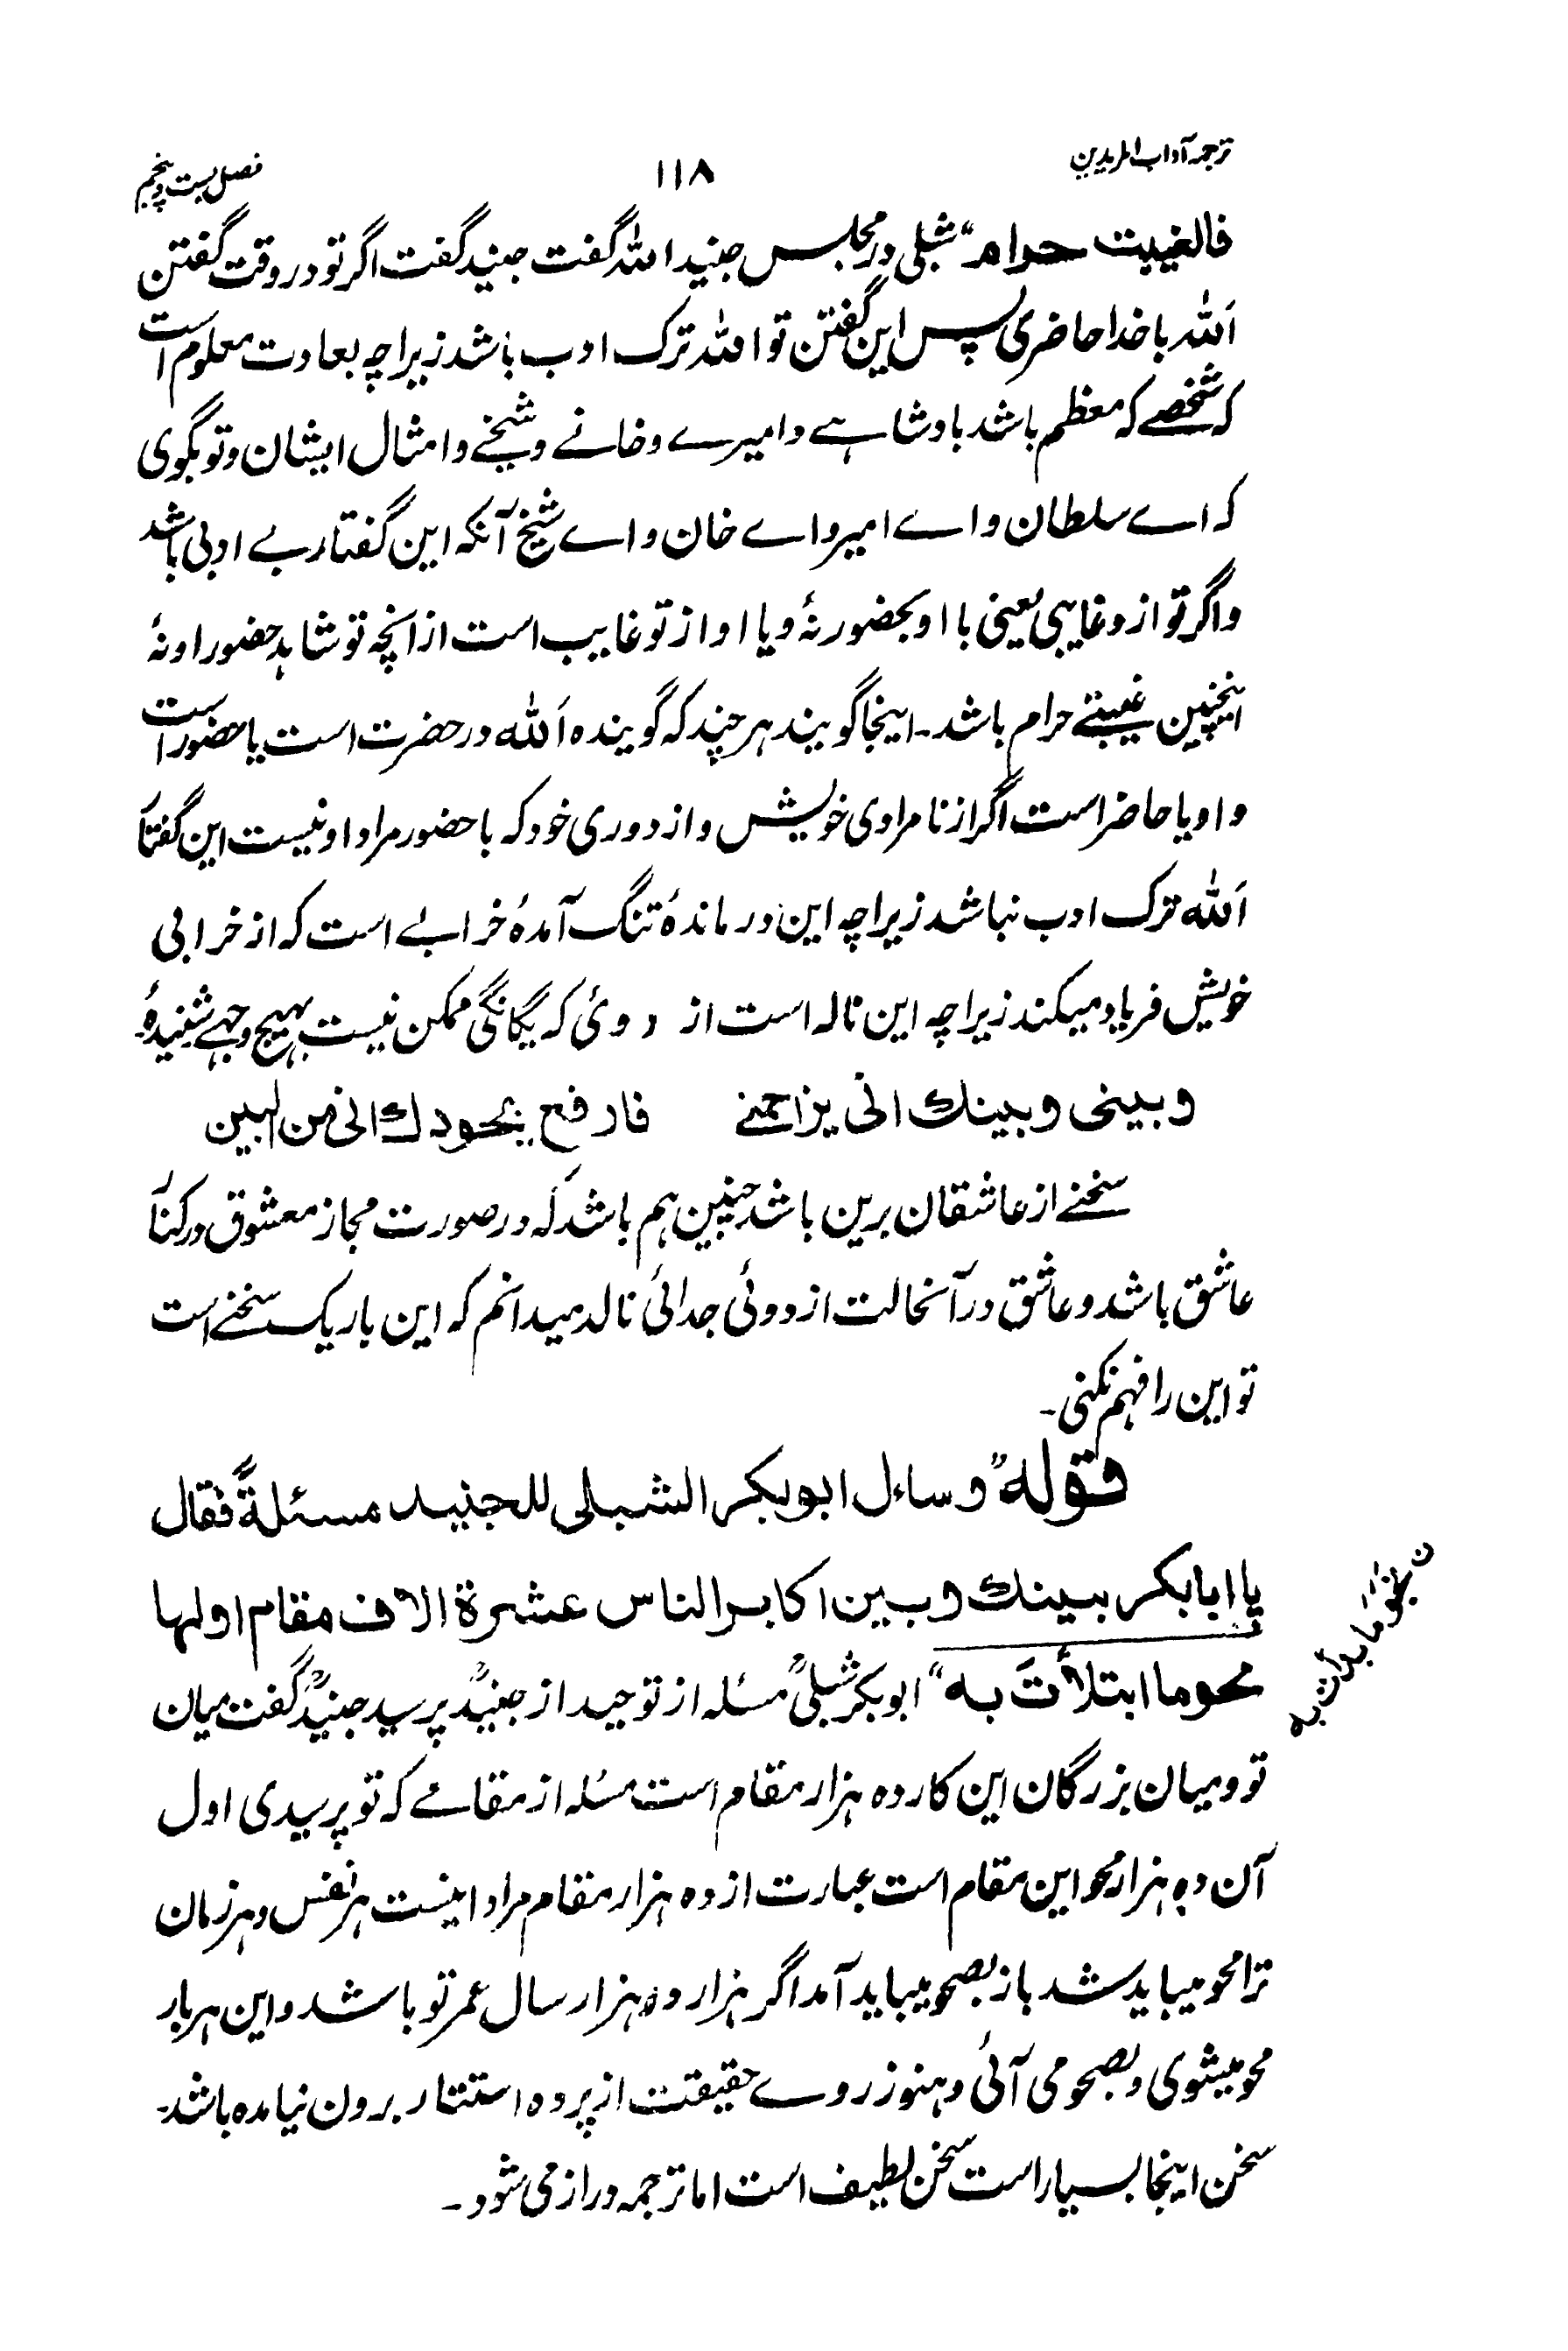 ترجمہ آداب المریدین
۱۱۸
فصل بیست و پنجم
فالغیبت حرام" شبلی در مجلس جنید اللہ گفت جنید گفت اگر تو در وقت گفتن
اَللہ با خدا حاضری پس این گفتن تو اللہ ترک ادب باشد زیراچہ بعادت معلوم است
کہ شخصے کہ معظم باشد بادشاہے و امیرے و خانے و شیخے و امثال ایشان و تو بگوی
کہ اے سلطان و اے امیر و اے خان و اے شیخ آنکہ این گفتار بے ادبی باشد
و اگر تو ازو غایبی یعنی با او بحضور نۂ و یا او از تو غایب است از انچہ تو شاہد حضور او نۂ
اینچنین غیبتے حرام باشد۔ اینجا گویند ہر چند کہ گویندہ اَللہ در حضرت است یا حضور است
و او یا حاضر است اگر از نامرادی خویش و از دوری خود کہ با حضور مراد او نیست این گفتار
اَللہ ترک ادب نباشد زیراچہ این در ماندۂ تنگ آمدۂ خرابے است کہ از خرابی
خویش فریاد میکند زیراچہ این نالہ است از دوئ کہ یگانگی ممکن نیست بہیچ وجہے شنیدۂ
و بینی و بینك انی یزاحمنے فارفع بجودك انی من البین
سخنے از عاشقان برین باشد چنین ہم باشد کہ در صورت مجاز معشوق در کنار
عاشق باشد و عاشق در آنحالت از دوئی جدائی نالد میدانم کہ این باریک سخنے است
تو این را فہم نکنی۔
قولہ" و ساءل ابوبکر الشبلی للجنید مسئلةً فقال
یا ابابکر بینك و بین اکابر الناس عشرة الاف مقام اولہا
محو ما ابتلأتَ بہ" ابوبکر شبلیؒ مسئلہ از توحید از جنیدؒ پرسید جنیدؒ گفت میان
تو و میان بزرگان این کار دہ ہزار مقام است مسئلہ از مقامے کہ تو پرسیدی اول
آن دہ ہزار محو این مقام است عبارت از دہ ہزار مقام مراد اینست ہر نفس و ہر زمان
ترا محو میباید شد باز بصحو میباید آمد اگر ہزار دہ ہزار سال عمر تو باشد و این ہر بار
محو میشوی و بصحو می آئی و ہنوز روے حقیقت از پردہ استتار برون نیامدہ باشد۔
سخن اینجا بسیار است سخن لطیف است اما ترجمہ دراز می شود۔
ن محو ما بدأت بہ